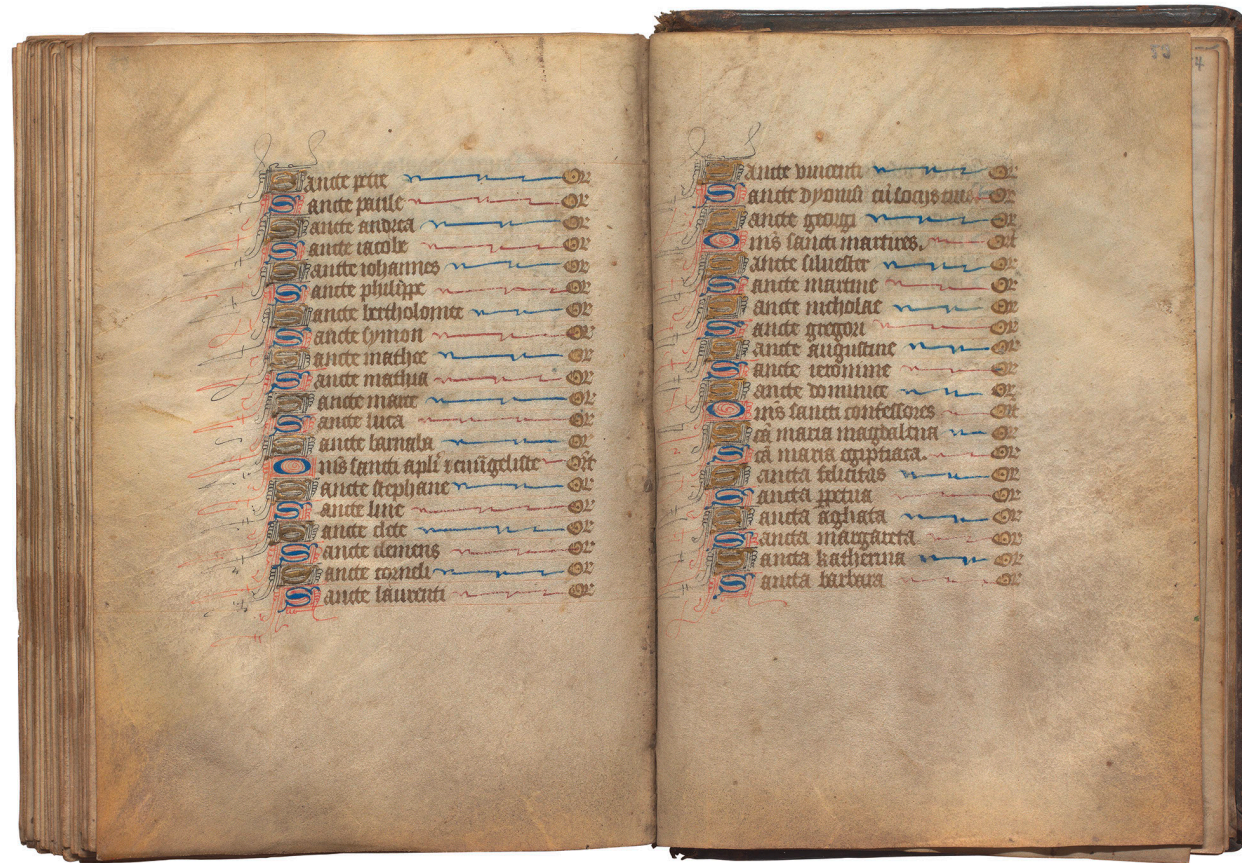 Sancte petre Or
Sancte paule Or
Sancte andrea Or
Sancte iacobe Or
Sancte iohannes Or
Sancte philippe Or
Sancte bertholomee Or
Sancte symon Or
Sancte mathee Or
Sancte mathia Or
Sancte marce Or
Sancte luca Or
Sancte barnaba Or
Om̄s sancti apl̄i ⁊ euūgeliste Ort
Sancte stephane Or
Sancte line Or
Sancte clete Or
Sancte clemens Or
Sancte corneli Or
Sancte laurenti Or
59
4
Sancte vincenti Or
Sancte dyonisi cū socijs tuis Or
Sancte georgi Or
Om̄s sancti martires. Ort
Sancte siluester Or
Sancte martine Or
Sancte nicholae Or
Sancte gregori Or
Sancte augustine Or
Sancte ieronime Or
Sancte dominice Or
Om̄s sancti confessores Ort
Scā maria magdalena Or
Scā maria egiptiaca. Or
Sancta felicitas Or
Sancta ꝑpetua Or
Sancta aghata Or
Sancta margareta Or
Sancta katherina Or
Sancta barbara Or